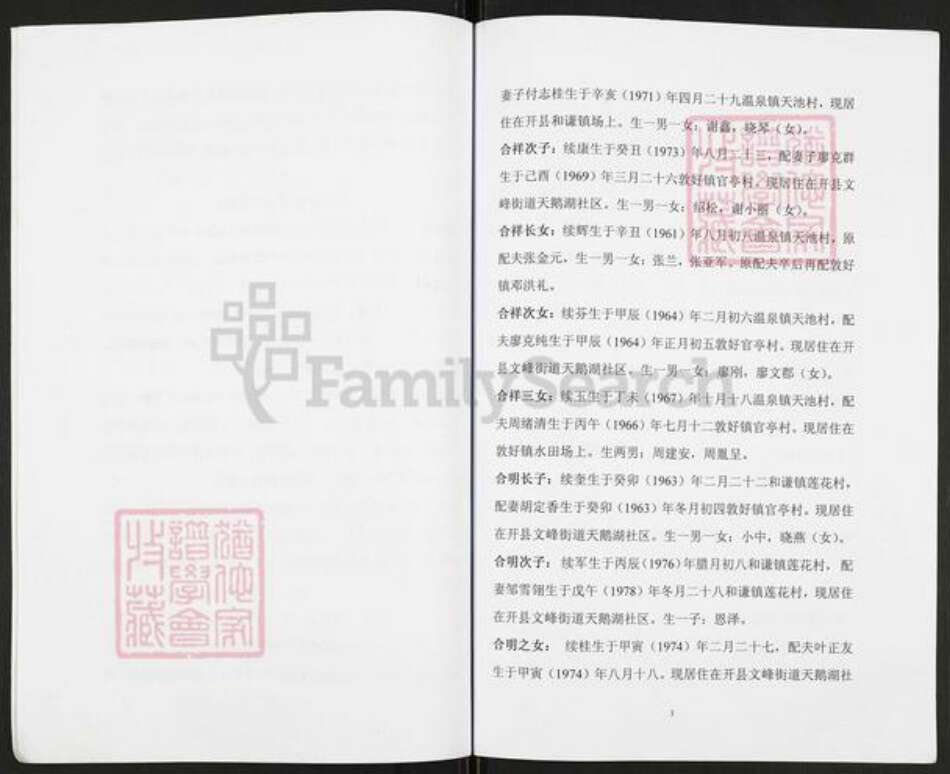 妻子付志桂生于辛亥（1971）年四月二十九温泉镇天池村，现居
住在开县和谦镇场上。生一男一女：谢鑫，晓琴（女）。
合祥次子：续康生于癸丑（1973）年八月二十三，配妻子廖克群
生于己酉（1969）年三月二十六敦好镇官亭村。现居住在开县文
峰街道天鹅湖社区。生一男一女：绍松，谢小丽（女）。
合祥长女：续辉生于辛丑（1961）年八月初八温泉镇天池村，原
配夫张金元，生一男一女：张兰，张亚军。原配夫卒后再配敦好
镇邓洪礼。
合祥次女：续芬生于甲辰（1964）年二月初六温泉镇天池村，配
夫廖克纯生于甲辰（1964）年正月初五敦好官亭村。现居住在开
县文峰街道天鹅湖社区。生一男一女：廖刚，廖文郡（女）。
合祥三女：续玉生于丁未（1967）年十月十八温泉镇天池村，配
夫周绪清生于丙午（1966）年七月十二敦好镇官亭村。现居住在
敦好镇水田场上。生两男：周建安，周胤呈。
合明长子：续奎生于癸卯（1963）年二月二十二和谦镇莲花村，
配妻胡定香生于癸卯（1963）年冬月初四敦好镇官亭村。现居住
在开县文峰街道天鹅湖社区。生一男一女：小中，晓燕（女）。
合明次子： 续军生于丙辰（1976）年腊月初八和谦镇莲花村， 配
妻邹雪翎生于戊午（1978）年冬月二十八和谦镇莲花村，现居住
在开县文峰街道天鹅湖社区。生一子：恩泽。
合明之女： 续桂生于甲寅（1974）年二月二十七，配夫叶正友
生于甲寅（1974）年八月十八。现居住在开县文峰街道天鹅湖社
3
FamilySearch
犹他家
谱学会
收藏